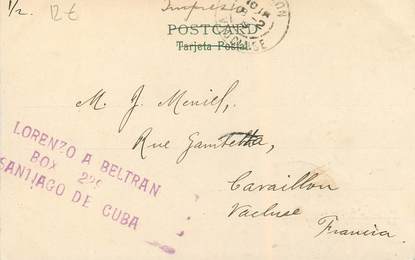 1/2 12€ Impresio
POSTCARD
Tarjeta Postal
VAUCLUSE
M. J. Meniel,
Rue Gambetta,
Cavaillon
Vacluse
Francia.
LORENZO A BELTRAN
BOX 225
SANTIAGO DE CUBA